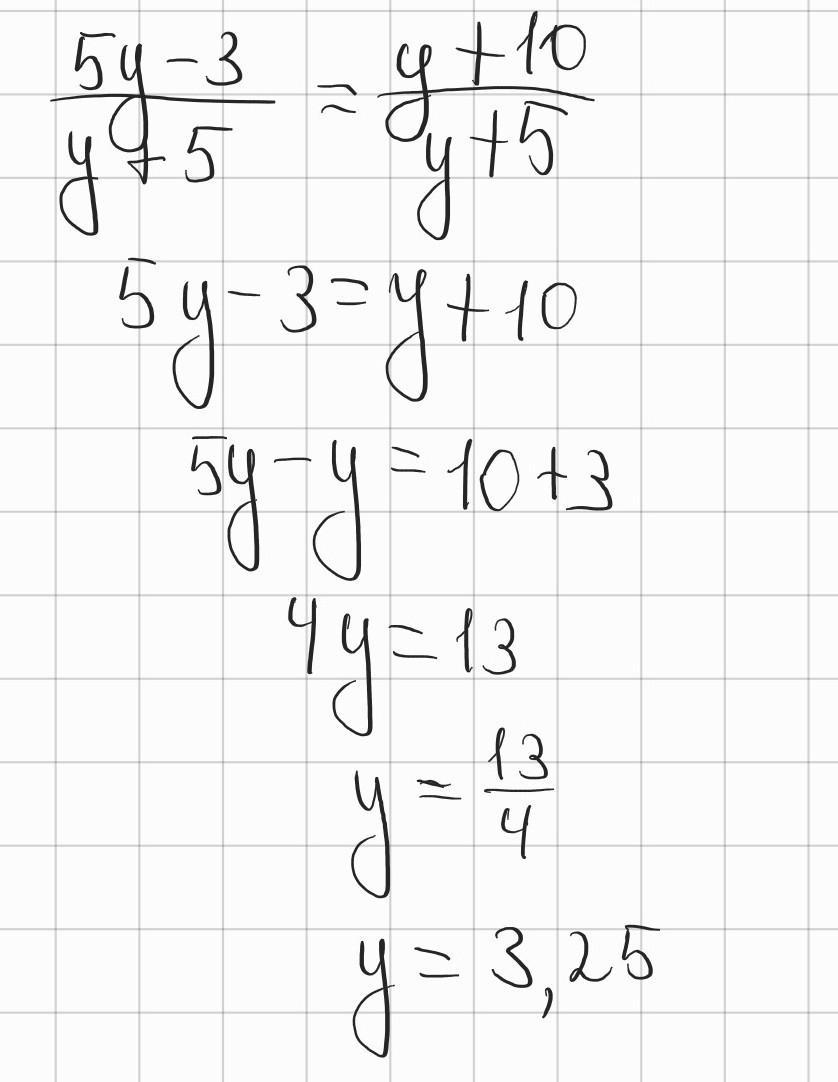 (5y-3)/(y+5) = (y+10)/(y+5)
5y-3=y+10
5y-y=10+3
4y=13
y=13/4
y=3,25